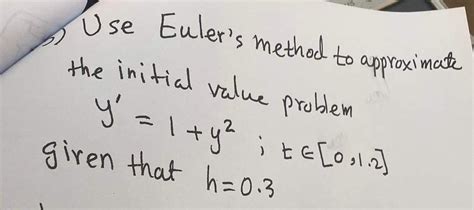 5) Use Euler's method to approximate
the initial value problem
y' = 1 + y² ; t ∈ [0,1.2]
given that h=0.3